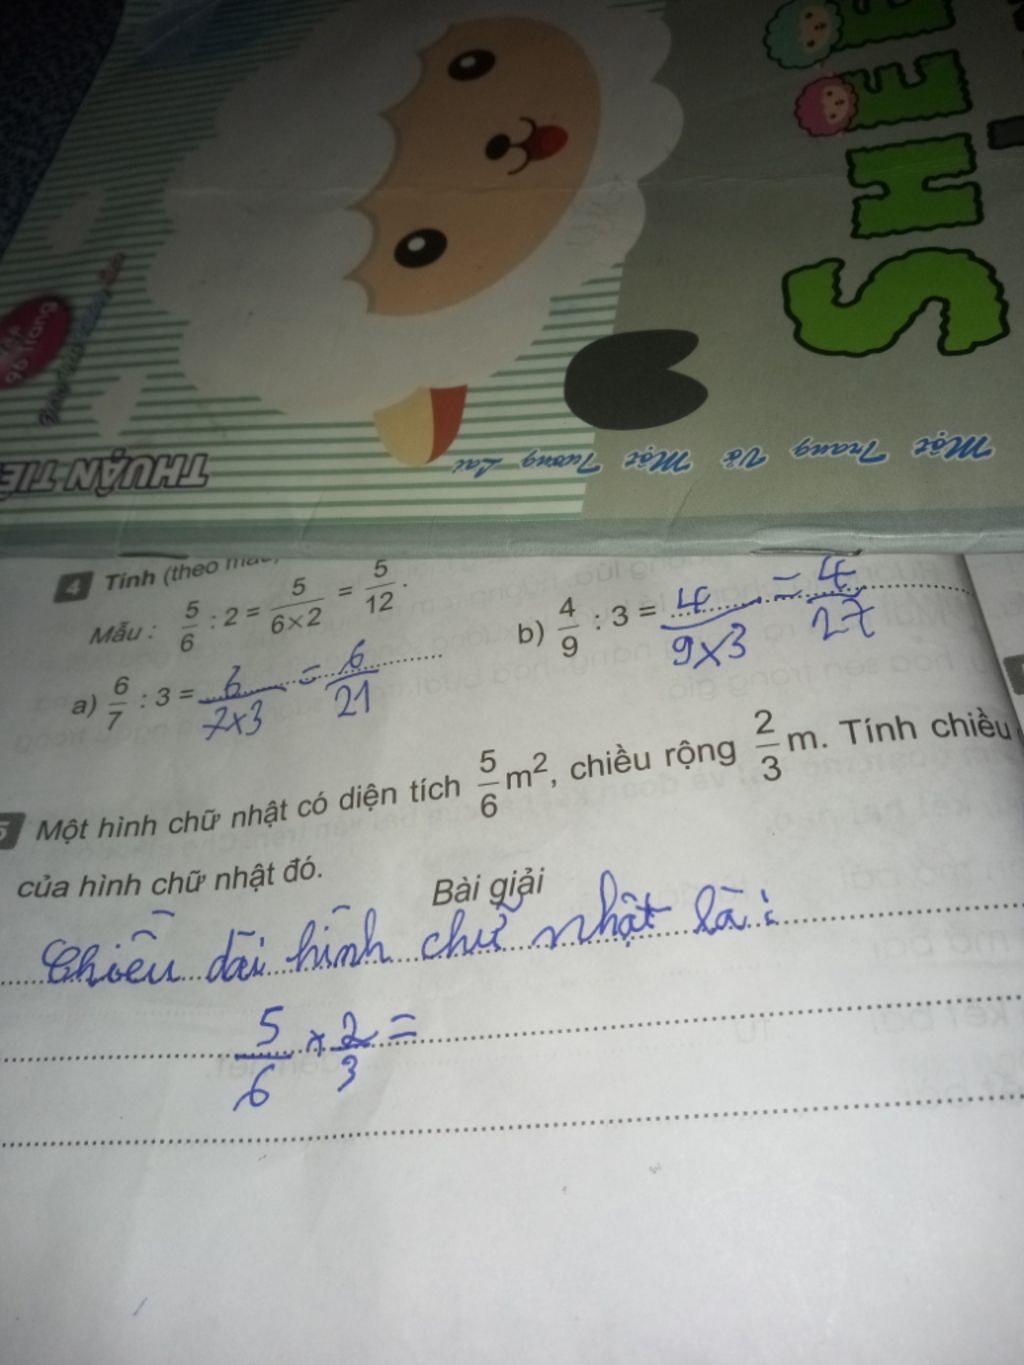 SHEE
Một Trang Vở Một Tương Lai
THUẬN TIẾ
96 trang
4 Tính (theo mẫu)
Mẫu : 5/6 : 2 = 5/6×2 = 5/12.
a) 6/7 : 3 = 6/7×3 = 6/21
b) 4/9 : 3 = 4/9×3 = 4/27
5 Một hình chữ nhật có diện tích 5/6 m², chiều rộng 2/3 m. Tính chiều
của hình chữ nhật đó.
Bài giải
Chiều dài hình chữ nhật là :
5/6 × 2/3 =